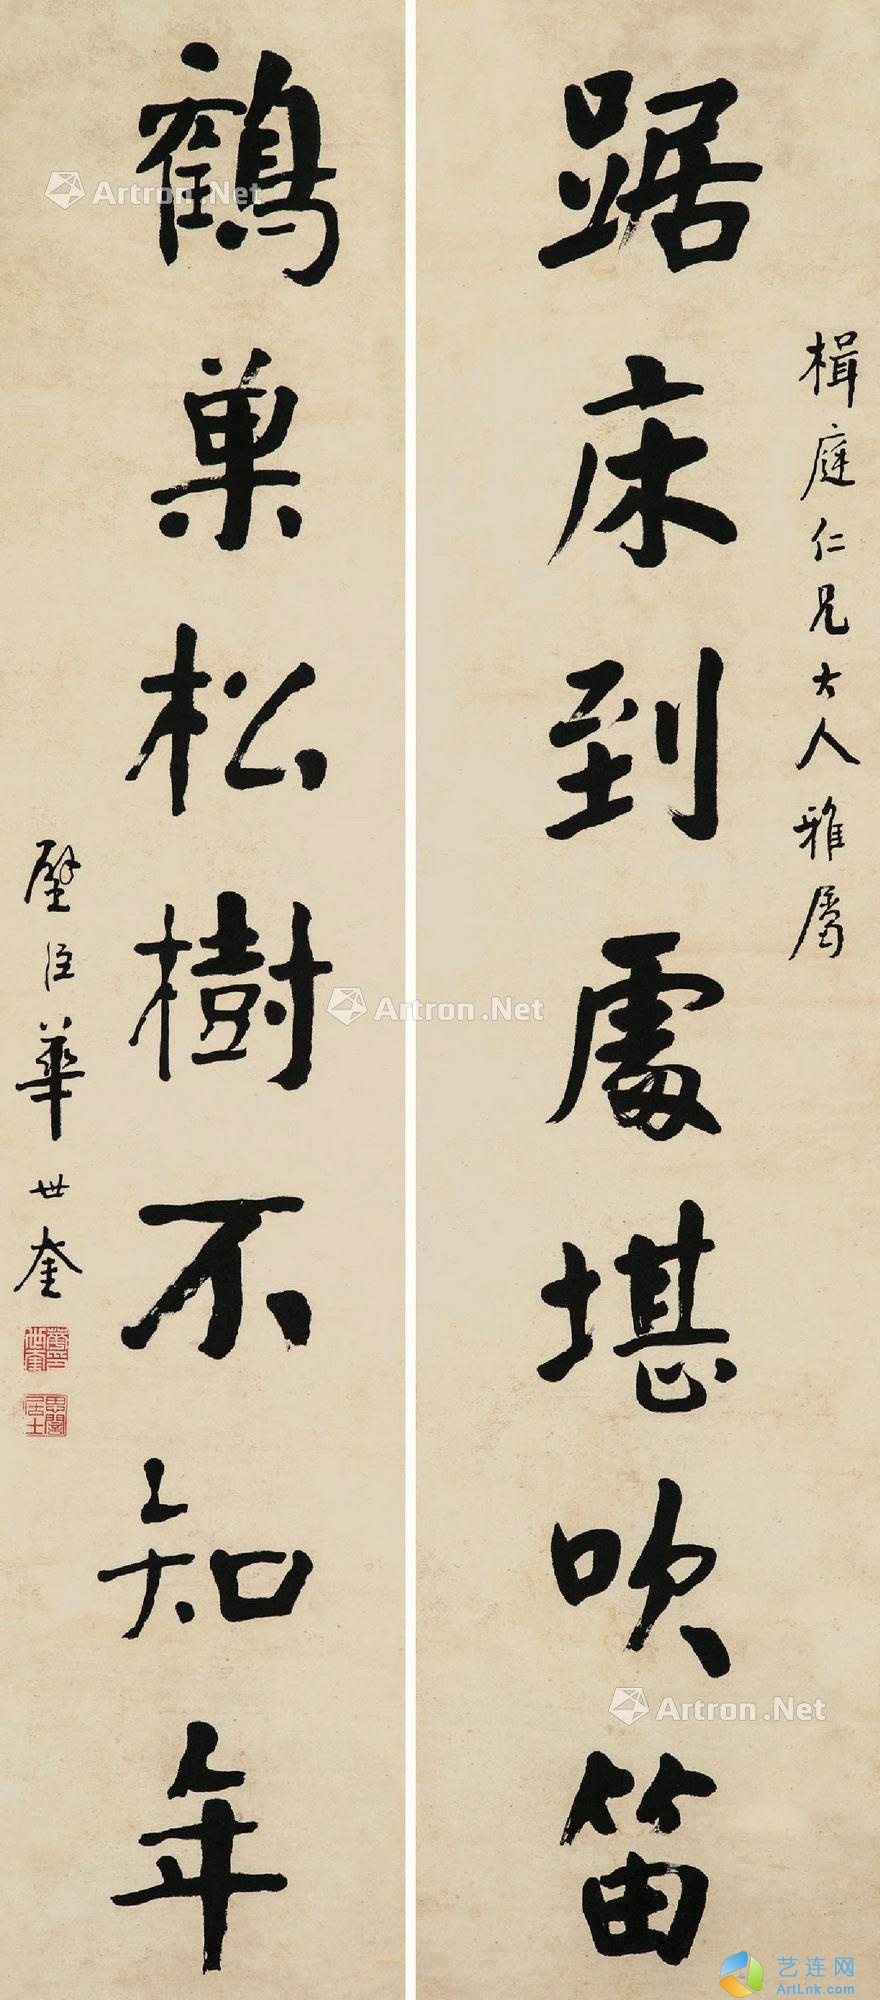 楫庭仁兄大人雅屬
踞床到處堪吹笛
鶴巢松樹不知年
璧臣華世奎
Artron.Net
Artron.Net
Artron.Net
艺连网
ArtLnk.com